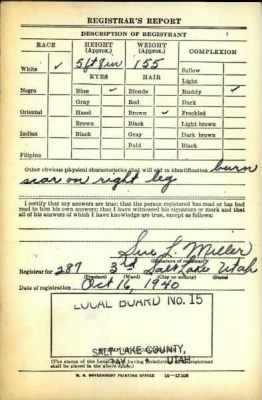 REGISTRAR'S REPORT
DESCRIPTION OF REGISTRANT
RACE HEIGHT (Approx.) WEIGHT (Approx.) COMPLEXION
White ✓ 5 ft 8 in 155 Sallow
EYES HAIR Light
Negro Blue ✓ Blonde Ruddy ✓
Gray Red Dark
Oriental Hazel Brown ✓ Freckled
Brown Black Light brown
Indian Black Gray Dark brown
Bald Black
Filipino
Other obvious physical characteristics that will aid in identification burn
scar on right leg
I certify that my answers are true; that the person registered has read or has had
read to him his own answers; that I have witnessed his signature or mark and that
all of his answers of which I have knowledge are true, except as follows:
Sue L. Miller
(Signature of registrar)
Registrar for 287 3rd Salt Lake Utah
(Precinct) (Ward) (City or county) (State)
Date of registration Oct 16, 1940
LOCAL BOARD NO. 15
SALT LAKE COUNTY,
UTAH
(The stamp of the Local Board having jurisdiction of the registrant
shall be placed in the above space.)
U. S. GOVERNMENT PRINTING OFFICE